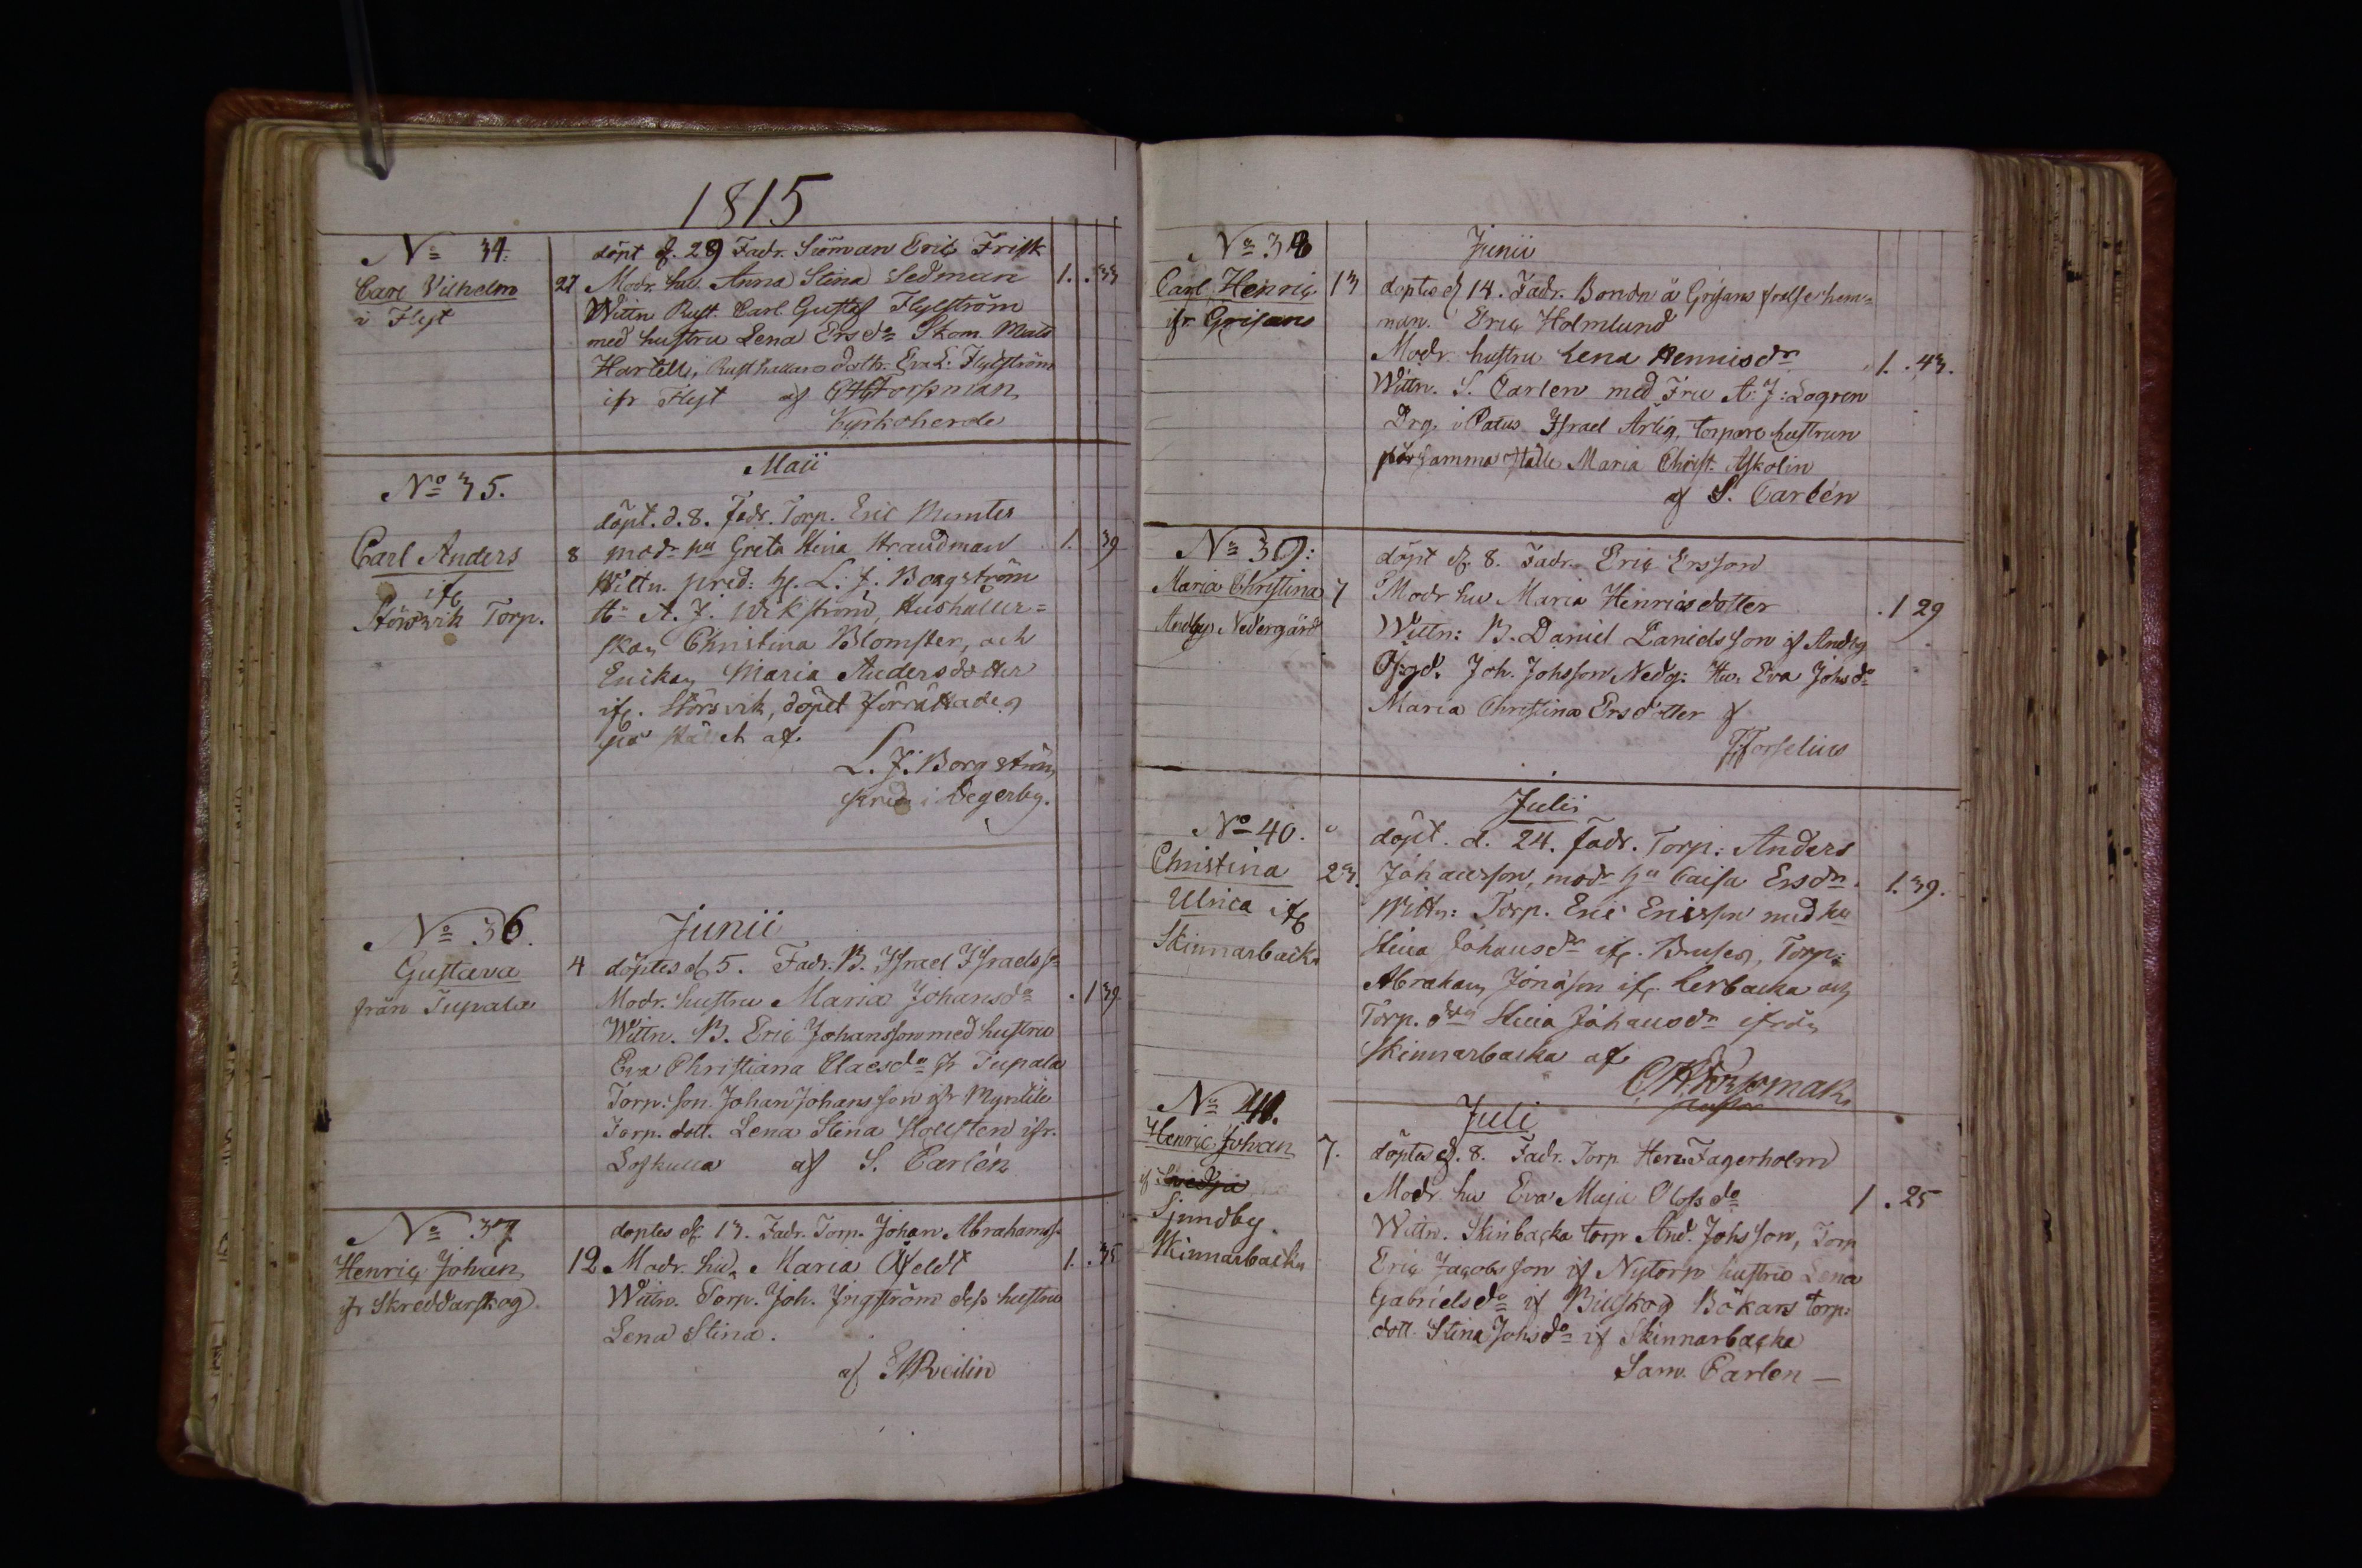 1815
No 34.
Carl Vilhelm
i Flyt
27
döpt d. 29 Fadr. Siöman Eric Frisk
Modr. hu. Anna Stina Sedman 1. . 33
Wittn Rust. Carl Gustaf Flytström
med hustru Lena Ersdr Skom. Mats
Hartell, Rusthållare dottr. Eva L. Flytström
ifr Flyt af Forssman
Kyrkoherde
Maii
No 35.
Carl Anders
ifr
Störsvik Torp.
8
döpt. d. 8. Fadr. Torp. Eric Munter
modr hu Greta Stina Strandman 1. 39
Wittn. pred: h. L. J. Borgström
A. J. Wikström, Hushåller=
skan Christina Blomster, och
Enkan Maria Andersdotter
ifr. Störsvik, döpet förrättades
på stället af.
L. J. Borgström
pred. i Degerby.
Junii
No 36.
Gustava
från Tupala
4
döptes d. 5. Fadr. B. Israel Israelss.
Modr. hustru Maria Johansdr . 1 39
Wittn. B. Eric Johansson med hustru
Eva Christiana Claesdr fr Tupala
Torp. son. Johan Johansson ifr Myntile
Torp. dott. Lena Stina Hollsten ifr.
Lofkulla af S. Carlén
No 37
Henric Johan
fr Skreddarskog
12
döptes d. 13. Fadr. Torp. Johan Abrahamss.
Modr. hu. Maria Öfeldt 1. . 35
Wittn. Torp. Joh. Yngström dess hustru
Lena Stina.
af Reilin
No 38
Carl Henric
ifr Grisans
13
Junii
doptes d 14. Fadr. Bonden å Grisans frälse hem=
man. Eric Holmlund
Modr. hustru Lena Hennisdr 1. . 43.
Wittn. S. Carlen med Fru A: J: Logren
Drg. i Patus Israel Ärlig, torpare hustrun
på samma ställe Maria Christ. Askolin
af S. Carlén
No 39:
Maria Christina
Andby Nedergård
7
döpt d. 8. Fadr. Eric Ersson
Modr hu Maria Henricsdotter . 1 29
Wittn: B. Daniel Danielsson if Andby
Öfrgd. Joh. Johsson Nedg: Hu. Eva Johsdr
Maria Christina Ersdotter af
Forselius
Julii
No 40.
Christina
Ulrica ifr
Skinnarbacka
23.
döpt. d. 24. fadr. Torp: Anders
Johansson, modr hu Caisa Ersdr. 1. 39.
Wittn: Torp. Eric Ericsson med hu
Stina Johansdr ifr. Bruses, Torp:
Abraham Jonason ifr. Kerbacka och
Torp. dtr Stina Johansdr ifrån
Skinnarbacka af
Forssman
No 41.
Henric Johan
if Svidja
Sjundby.
Skinnarbacka
7.
Juli
döptes d. 8. Fadr. Torp Henr. Fagerholm
Modr hu Eva Maja Olofsdr 1 . 25
Wittn. Skinbacka torp And. Johsson, Torp
Eric Jacobsson if Nytorp hustru Lena
Gabrielsdr if Billskog Bökars torp:
dott. Stina Johsdr if Skinnarbacka
Sam. Carlen —